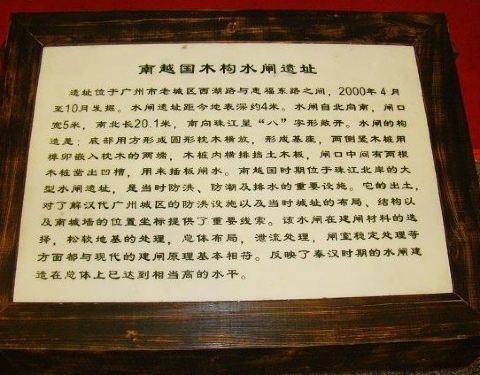 南越国木构水闸遗址
遗址位于广州市老城区西湖路与惠福东路之间，2000年4月
至10月发掘。水闸遗址距今地表深约4米。水闸自北向南，闸口
宽5米，南北长20.1米，南向珠江呈“八”字形敞开。水闸的构
造是：底部用方形或圆形枕木横放，形成基座，两侧竖木桩用
榫卯嵌入枕木的两端，木桩内横排挡土木板，闸口中间有两根
木桩凿出凹槽，用来插板闸水。南越国时期位于珠江北岸的大
型水闸遗址，是当时防洪、防潮及排水的重要设施。它的出土，
对了解汉代广州城区的防洪设施以及当时城址的布局、结构以
及南城墙的位置坐标提供了重要线索。该水闸在建闸材料的选
择，松软地基的处理，总体布局，泄流处理，闸室稳定处理等
方面都与现代的建闸原理基本相符。反映了秦汉时期的水闸建
造在总体上已达到相当高的水平。